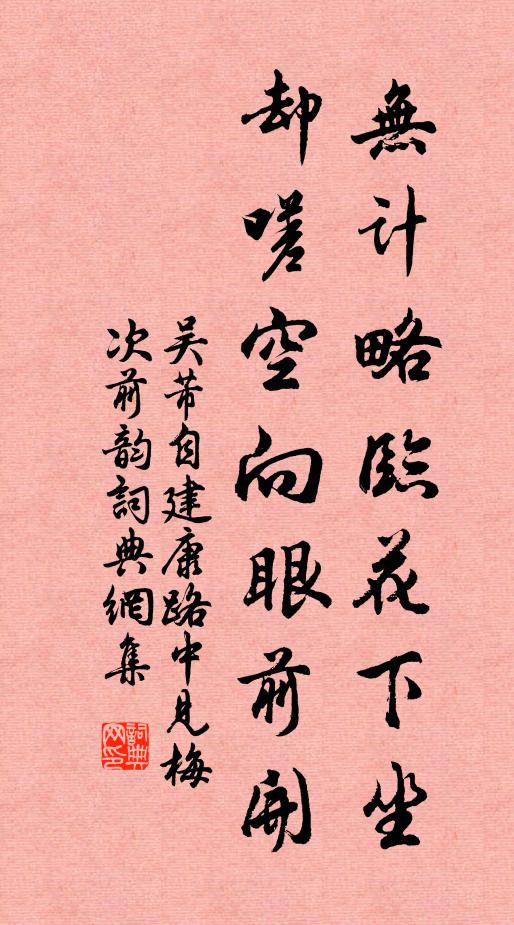 無計略臨花下坐
却嗟空向眼前開
吴芾自建康路中見梅
次前韵詞典網集
詞典网印